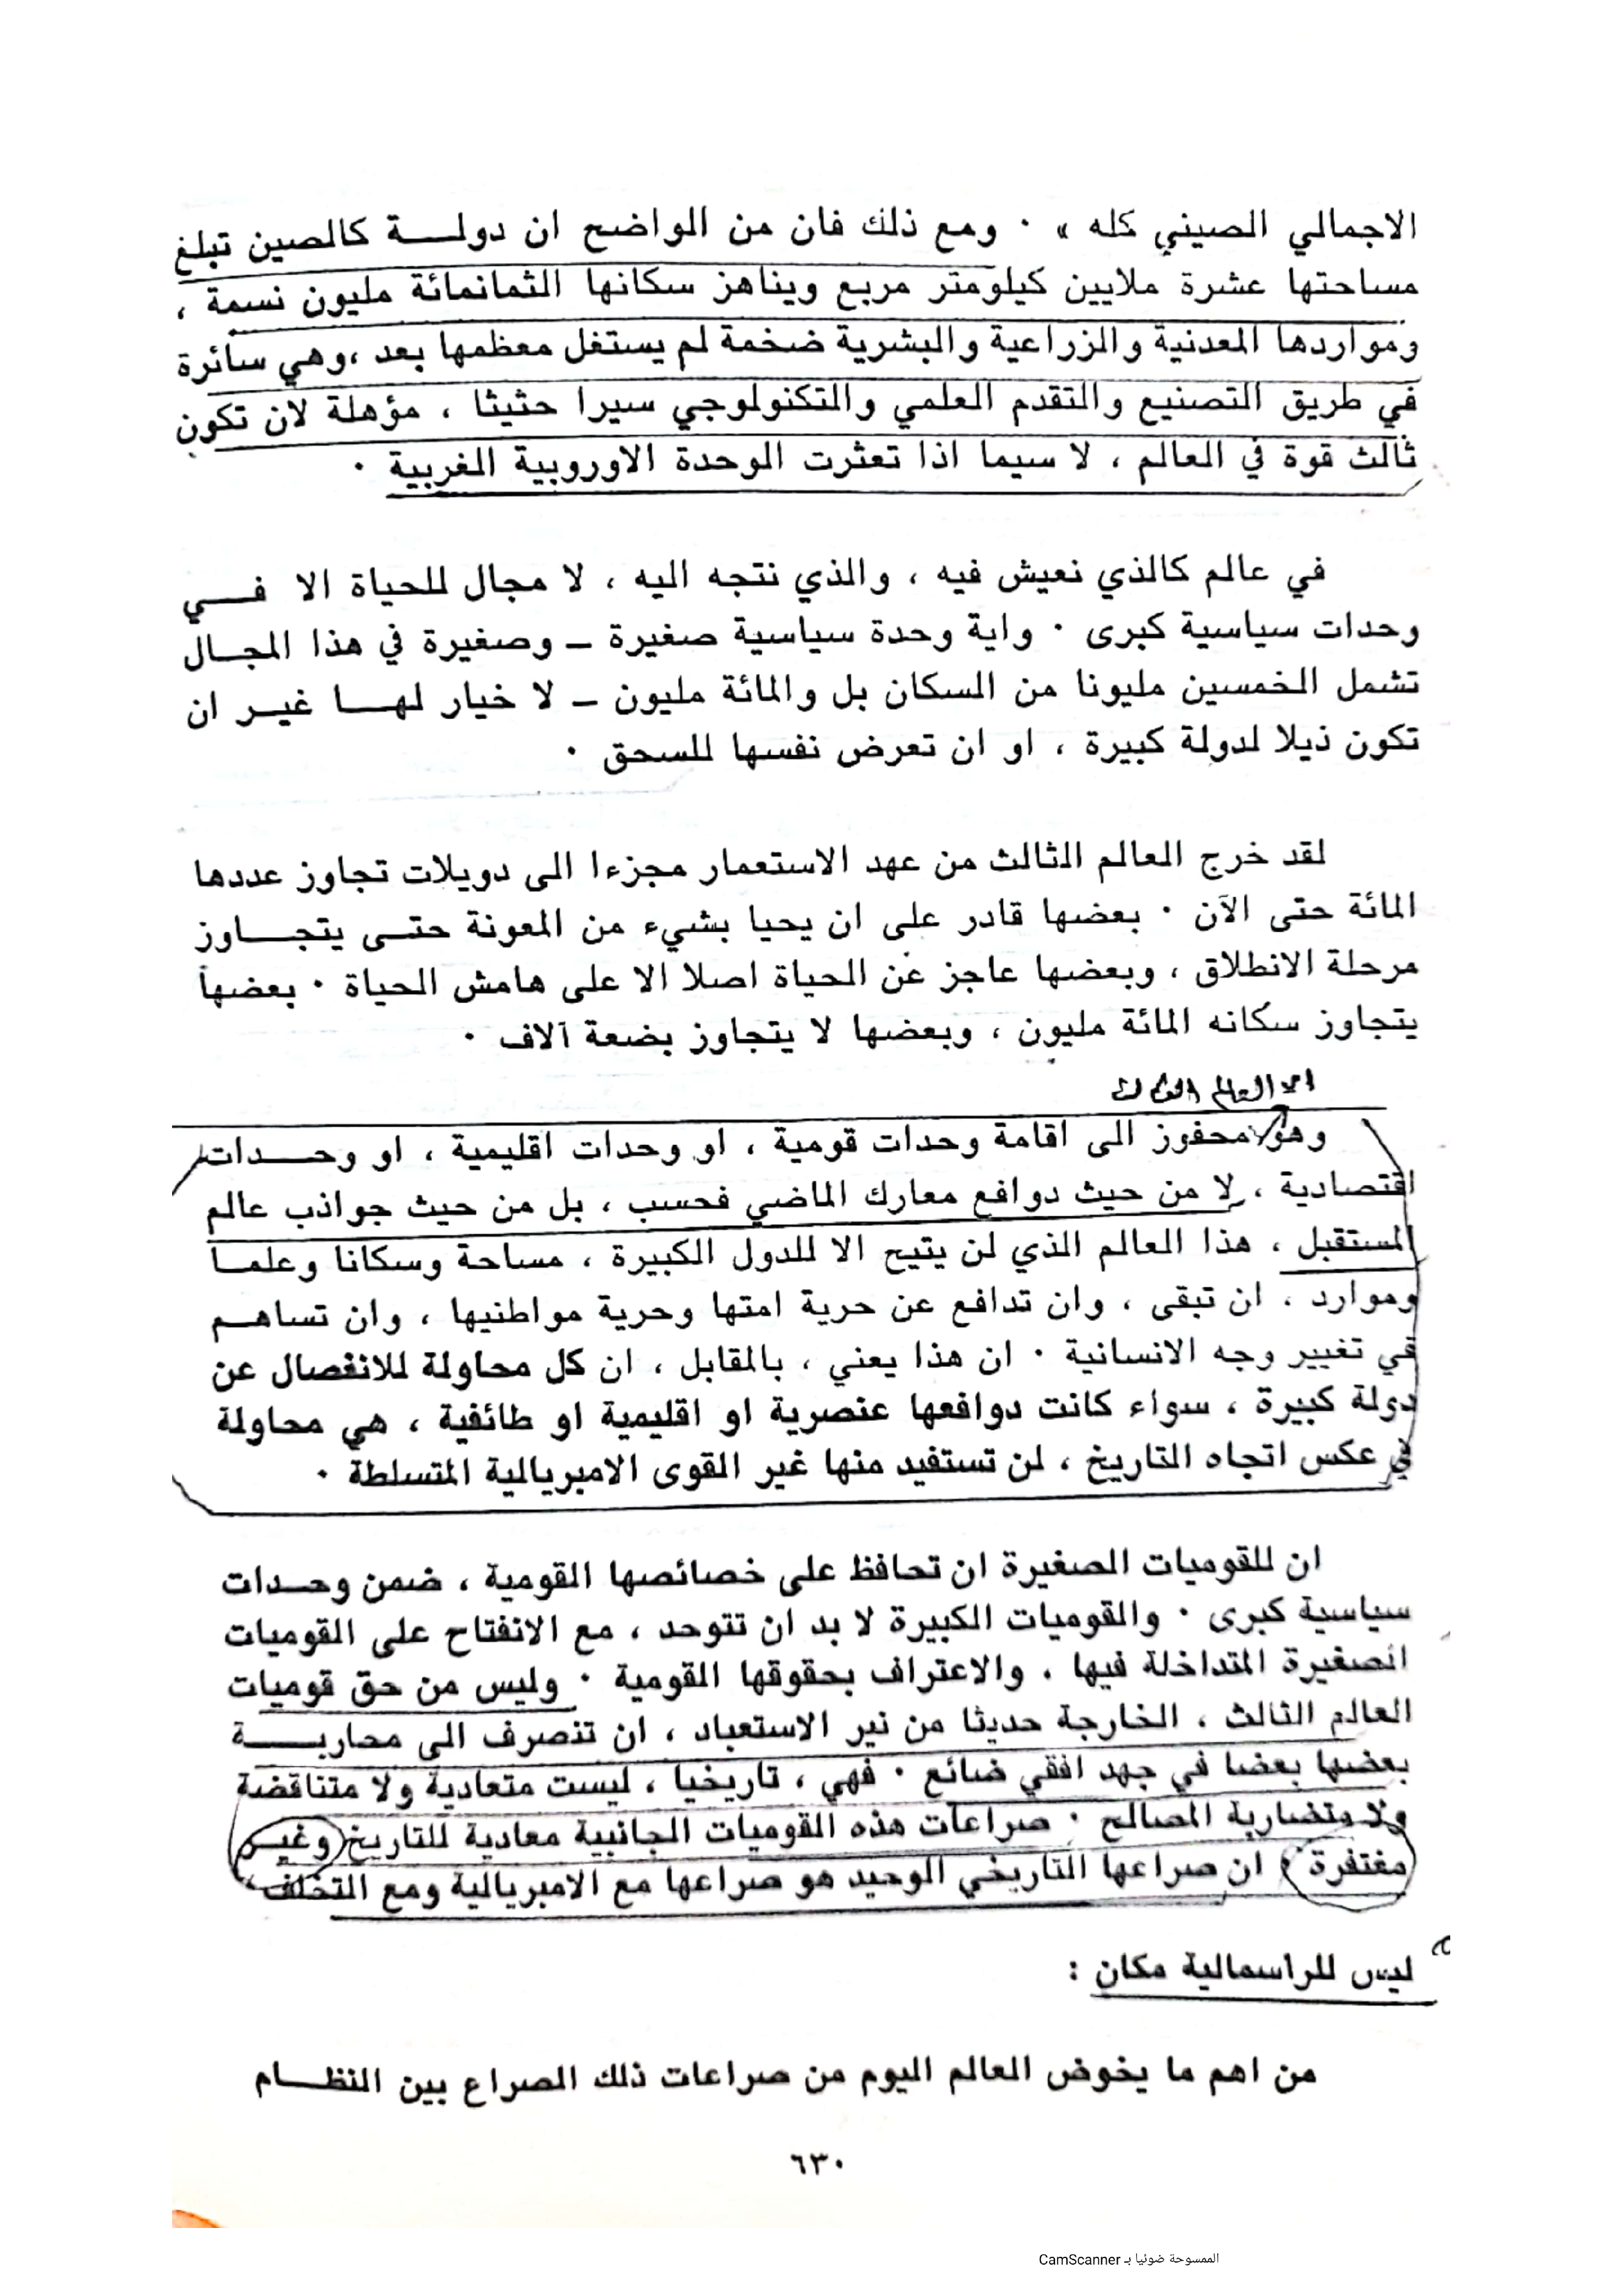 الاجمالي الصيني كله » ٠ ومع ذلك فان من الواضح ان دولـــة كالصين تبلغ
مساحتها عشرة ملايين كيلومتر مربع ويناهز سكانها الثمانمائة مليون نسمة ،
ومواردها المعدنية والزراعية والبشرية ضخمة لم يستغل معظمها بعد ،وهي سائرة
في طريق التصنيع والتقدم العلمي والتكنولوجي سيرا حثيثا ، مؤهلة لان تكون
ثالث قوة في العالم ، لا سيما اذا تعثرت الوحدة الاوروبية الغربية ٠
في عالم كالذي نعيش فيه ، والذي نتجه اليه ، لا مجال للحياة الا فـــي
وحدات سياسية كبرى ٠ واية وحدة سياسية صغيرة ــ وصغيرة في هذا المجــال
تشمل الخمسين مليونا من السكان بل والمائة مليون ــ لا خيار لهــا غيــر ان
تكون ذيلا لدولة كبيرة ، او ان تعرض نفسها للسحق ٠
لقد خرج العالم الثالث من عهد الاستعمار مجزءا الى دويلات تجاوز عددها
المائة حتى الآن ٠ بعضها قادر على ان يحيا بشيء من المعونة حتــى يتجــاوز
مرحلة الانطلاق ، وبعضها عاجز عن الحياة اصلا الا على هامش الحياة ٠ بعضها
يتجاوز سكانه المائة مليون ، وبعضها لا يتجاوز بضعة آلاف ٠
العالم الثالث
وهو محفوز الى اقامة وحدات قومية ، او وحدات اقليمية ، او وحــدات
اقتصادية ، لا من حيث دوافع معارك الماضي فحسب ، بل من حيث جواذب عالم
المستقبل ، هذا العالم الذي لن يتيح الا للدول الكبيرة ، مساحة وسكانا وعلمــا
وموارد ، ان تبقى ، وان تدافع عن حرية امتها وحرية مواطنيها ، وان تساهــم
في تغيير وجه الانسانية ٠ ان هذا يعني ، بالمقابل ، ان كل محاولة للانفصال عن
دولة كبيرة ، سواء كانت دوافعها عنصرية او اقليمية او طائفية ، هي محاولة
في عكس اتجاه التاريخ ، لن تستفيد منها غير القوى الامبريالية المتسلطة ٠
ان للقوميات الصغيرة ان تحافظ على خصائصها القومية ، ضمن وحــدات
سياسية كبرى ٠ والقوميات الكبيرة لا بد ان تتوحد ، مع الانفتاح على القوميات
الصغيرة المتداخلة فيها ، والاعتراف بحقوقها القومية ٠ وليس من حق قوميات
العالم الثالث ، الخارجة حديثا من نير الاستعباد ، ان تنصرف الى محاربــة
بعضها بعضا في جهد افقي ضائع ٠ فهي ، تاريخيا ، ليست متعادية ولا متناقضة
ولا متضاربة المصالح ٠ صراعات هذه القوميات الجانبية معادية للتاريخ وغيــر
مغتفرة ، ان صراعها التاريخي الوحيد هو صراعها مع الامبريالية ومع التخلف
ليس للراسمالية مكان :
من اهم ما يخوض العالم اليوم من صراعات ذلك الصراع بين النظــام
٦٣٠
الممسوحة ضوئيا بـ CamScanner